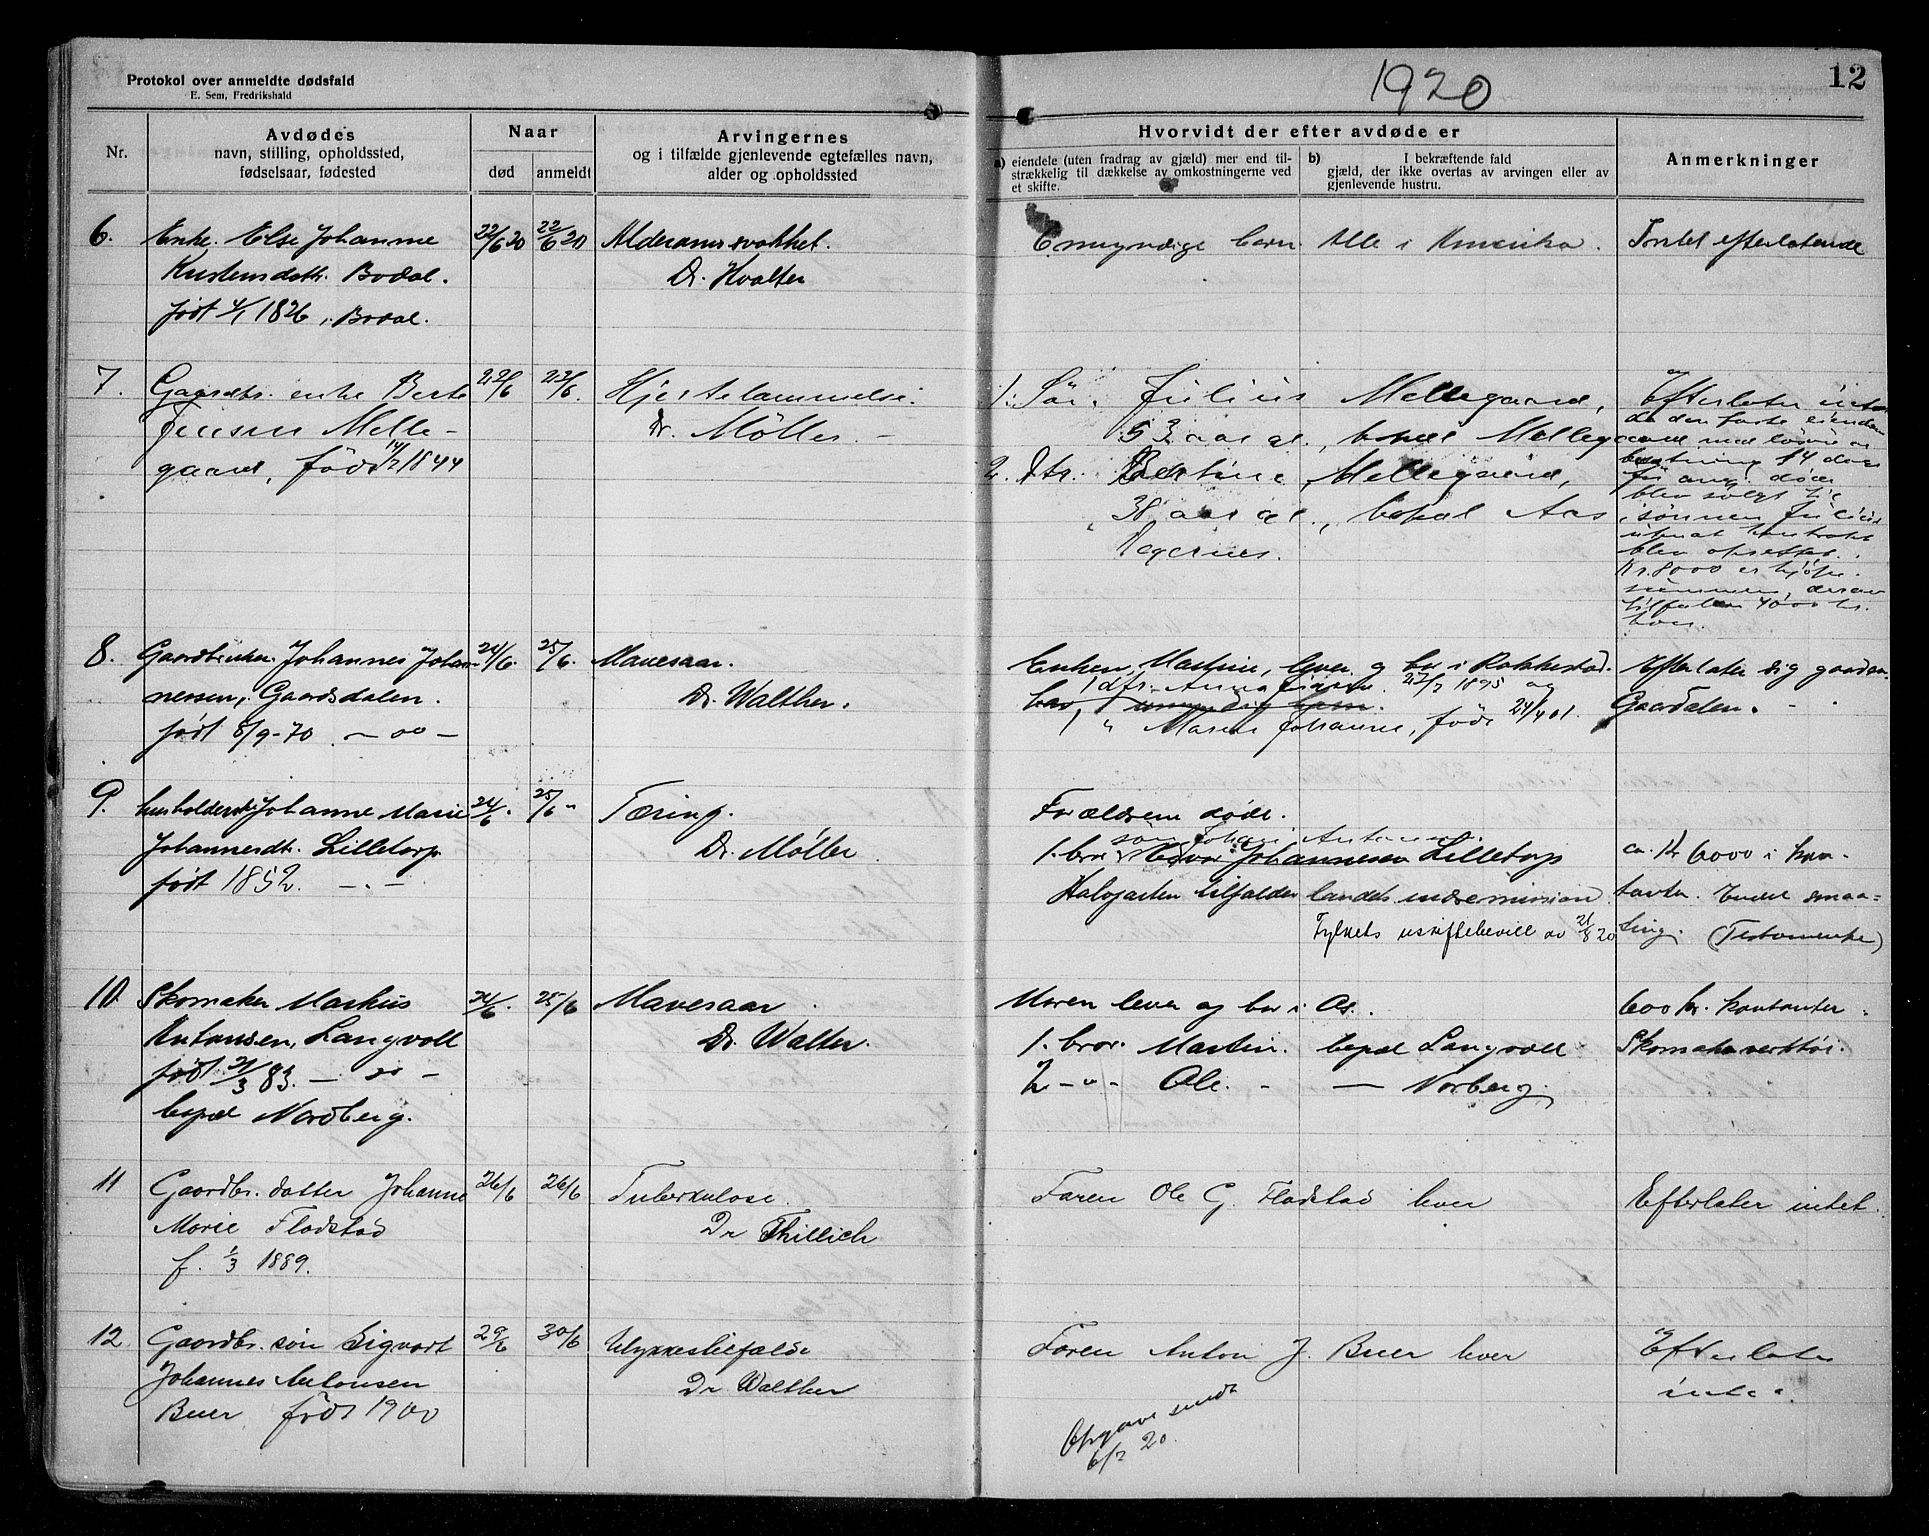 Protokol over anmeldte dødsfald
E. Sem, Fredrikshald
1920
12
Nr.
Avdødes
navn, stilling, opholdssted,
fødselsaar, fødested
Naar
død
anmeldt
Arvingernes
og i tilfælde gjenlevende egtefælles navn,
alder og opholdssted
Hvorvidt der efter avdøde er
a) eiendele (uten fradrag av gjæld) mer end til-
strækkelig til dækkelse av omkostningerne ved
et skifte.
b) I bekræftende fald
gjæld, der ikke overtas av arvingen eller av
gjenlevende hustru.
Anmerkninger
6.
Enke. Else Johanne
Kristensdatt. Bodal.
født 4/1 1826 i Bodal.
22/6 20
22/6 20
Dr. Hvalter
6 myndige barn. Alle i Amerika.
Intet efterlatende
7.
Gaardbr. enke Berte
Jensen Melle-
gaard, født 14/2 1844
22/6
23/6.
Hjertelammelse.
Dr. Møller. -
1. Søn. Julius Mellegaard,
53 aar gl., bopæl Mellegaard
2. Dtr. Bertine Mellegaard,
38 aar gl., bopæl Aas
Degernes.
Efterlater intet
da den faste eiendom
med løsøre og
besætning 14 dage
blev solgt til
sønnen Julius
blev opsettet.
Kr. 8000 er kjøpe-
summen, derav
tilfalder 4000 kr.
8.
Gaardbruker Johannes Johan-
nessen, Gaardsdalen.
født 8/9-70 - oo -
24/6.
25/6.
Mavesaar.
Dr. Walther.
Enken, Martine, lever og bor i Rakkestad.
1 dtr. Anna 27/7 1895 og
1 " Marie Johanne, født 24/4 01.
Efterlater sig gaarden
Gaardalen. -
9.
husholderske Johanne Marie
Johannesdt. Lilletorp.
født 1852. - . -
24/6.
25/6 -
Tæring.
Dr. Møller
Forældrene døde.
søn Johan Anton
1. bror Johannesen Lilletorp
Halvparten tilfalder landets indremission.
Fylkets uskiftebevill av 21/8 20
ca. kr 6000 i kon-
tanter. Endel smaa-
ting. (Testamente)
10.
Skomaker Markus
Antonsen, Langvoll
født 21/3 83. - oo -
bopæl Nordberg.
24/6.
25/6
Mavesaar.
Dr. Walter.
Moren lever og bor i Os.
1. bror. Martin. bopæl Langvoll
2 - " - Ole. - - Norberg.
600 kr. kontanter.
Skomakerverktøi.
11
Gaardbr. datter Johanne
Marie Flodstad
f. 1/3 1889.
26/6
26/6
Tuberkulose.
Dr Thillich
Faren Ole G. Flodstad lever
Efterlater intet.
12.
Gaardbr. søn Sigvart
Johannes Antonsen
Buer født 1900
29/6
30/6
Ulykkestilfælde
Dr Walther
Faren Anton J. Buer lever
Opgave sendt
6/7 20.
Efterlater
intet.